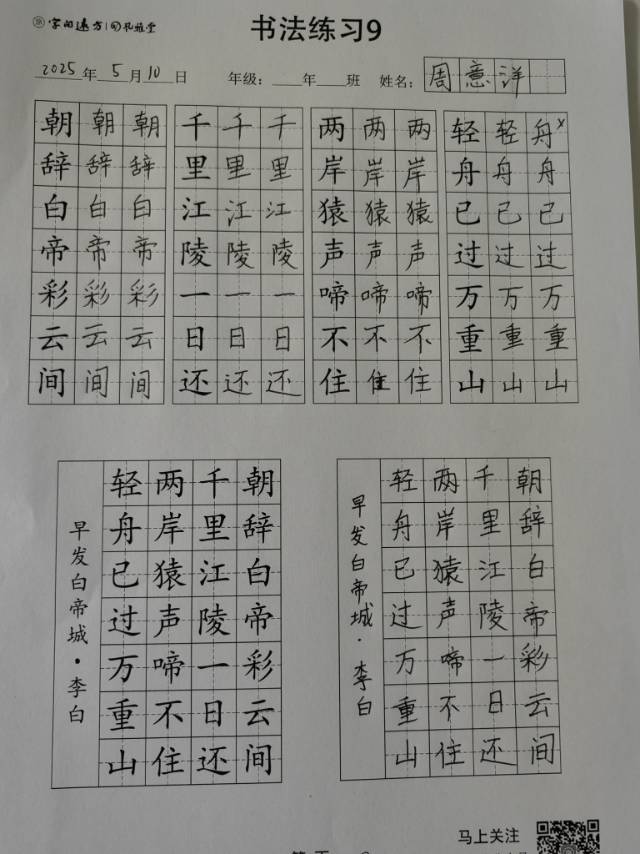 字的远方 孔雅堂
书法练习9
2025年5月10日 年级：___年___班 姓名：周意洋
朝朝朝 千千千 两两两 轻轻舟x
辞辞辞 里里里 岸岸岸 舟舟舟
白白白 江江江 猿猿猿 已已已
帝帝帝 陵陵陵 声声声 过过过
彩彩彩 一一一 啼啼啼 万万万
云云云 日日日 不不不 重重重
间间间 还还还 住住住 山山山
朝辞白帝彩云间
千里江陵一日还
两岸猿声啼不住
轻舟已过万重山
早发白帝城·李白
朝辞白帝彩云间
千里江陵一日还
两岸猿声啼不住
轻舟已过万重山
早发白帝城·李白
马上关注